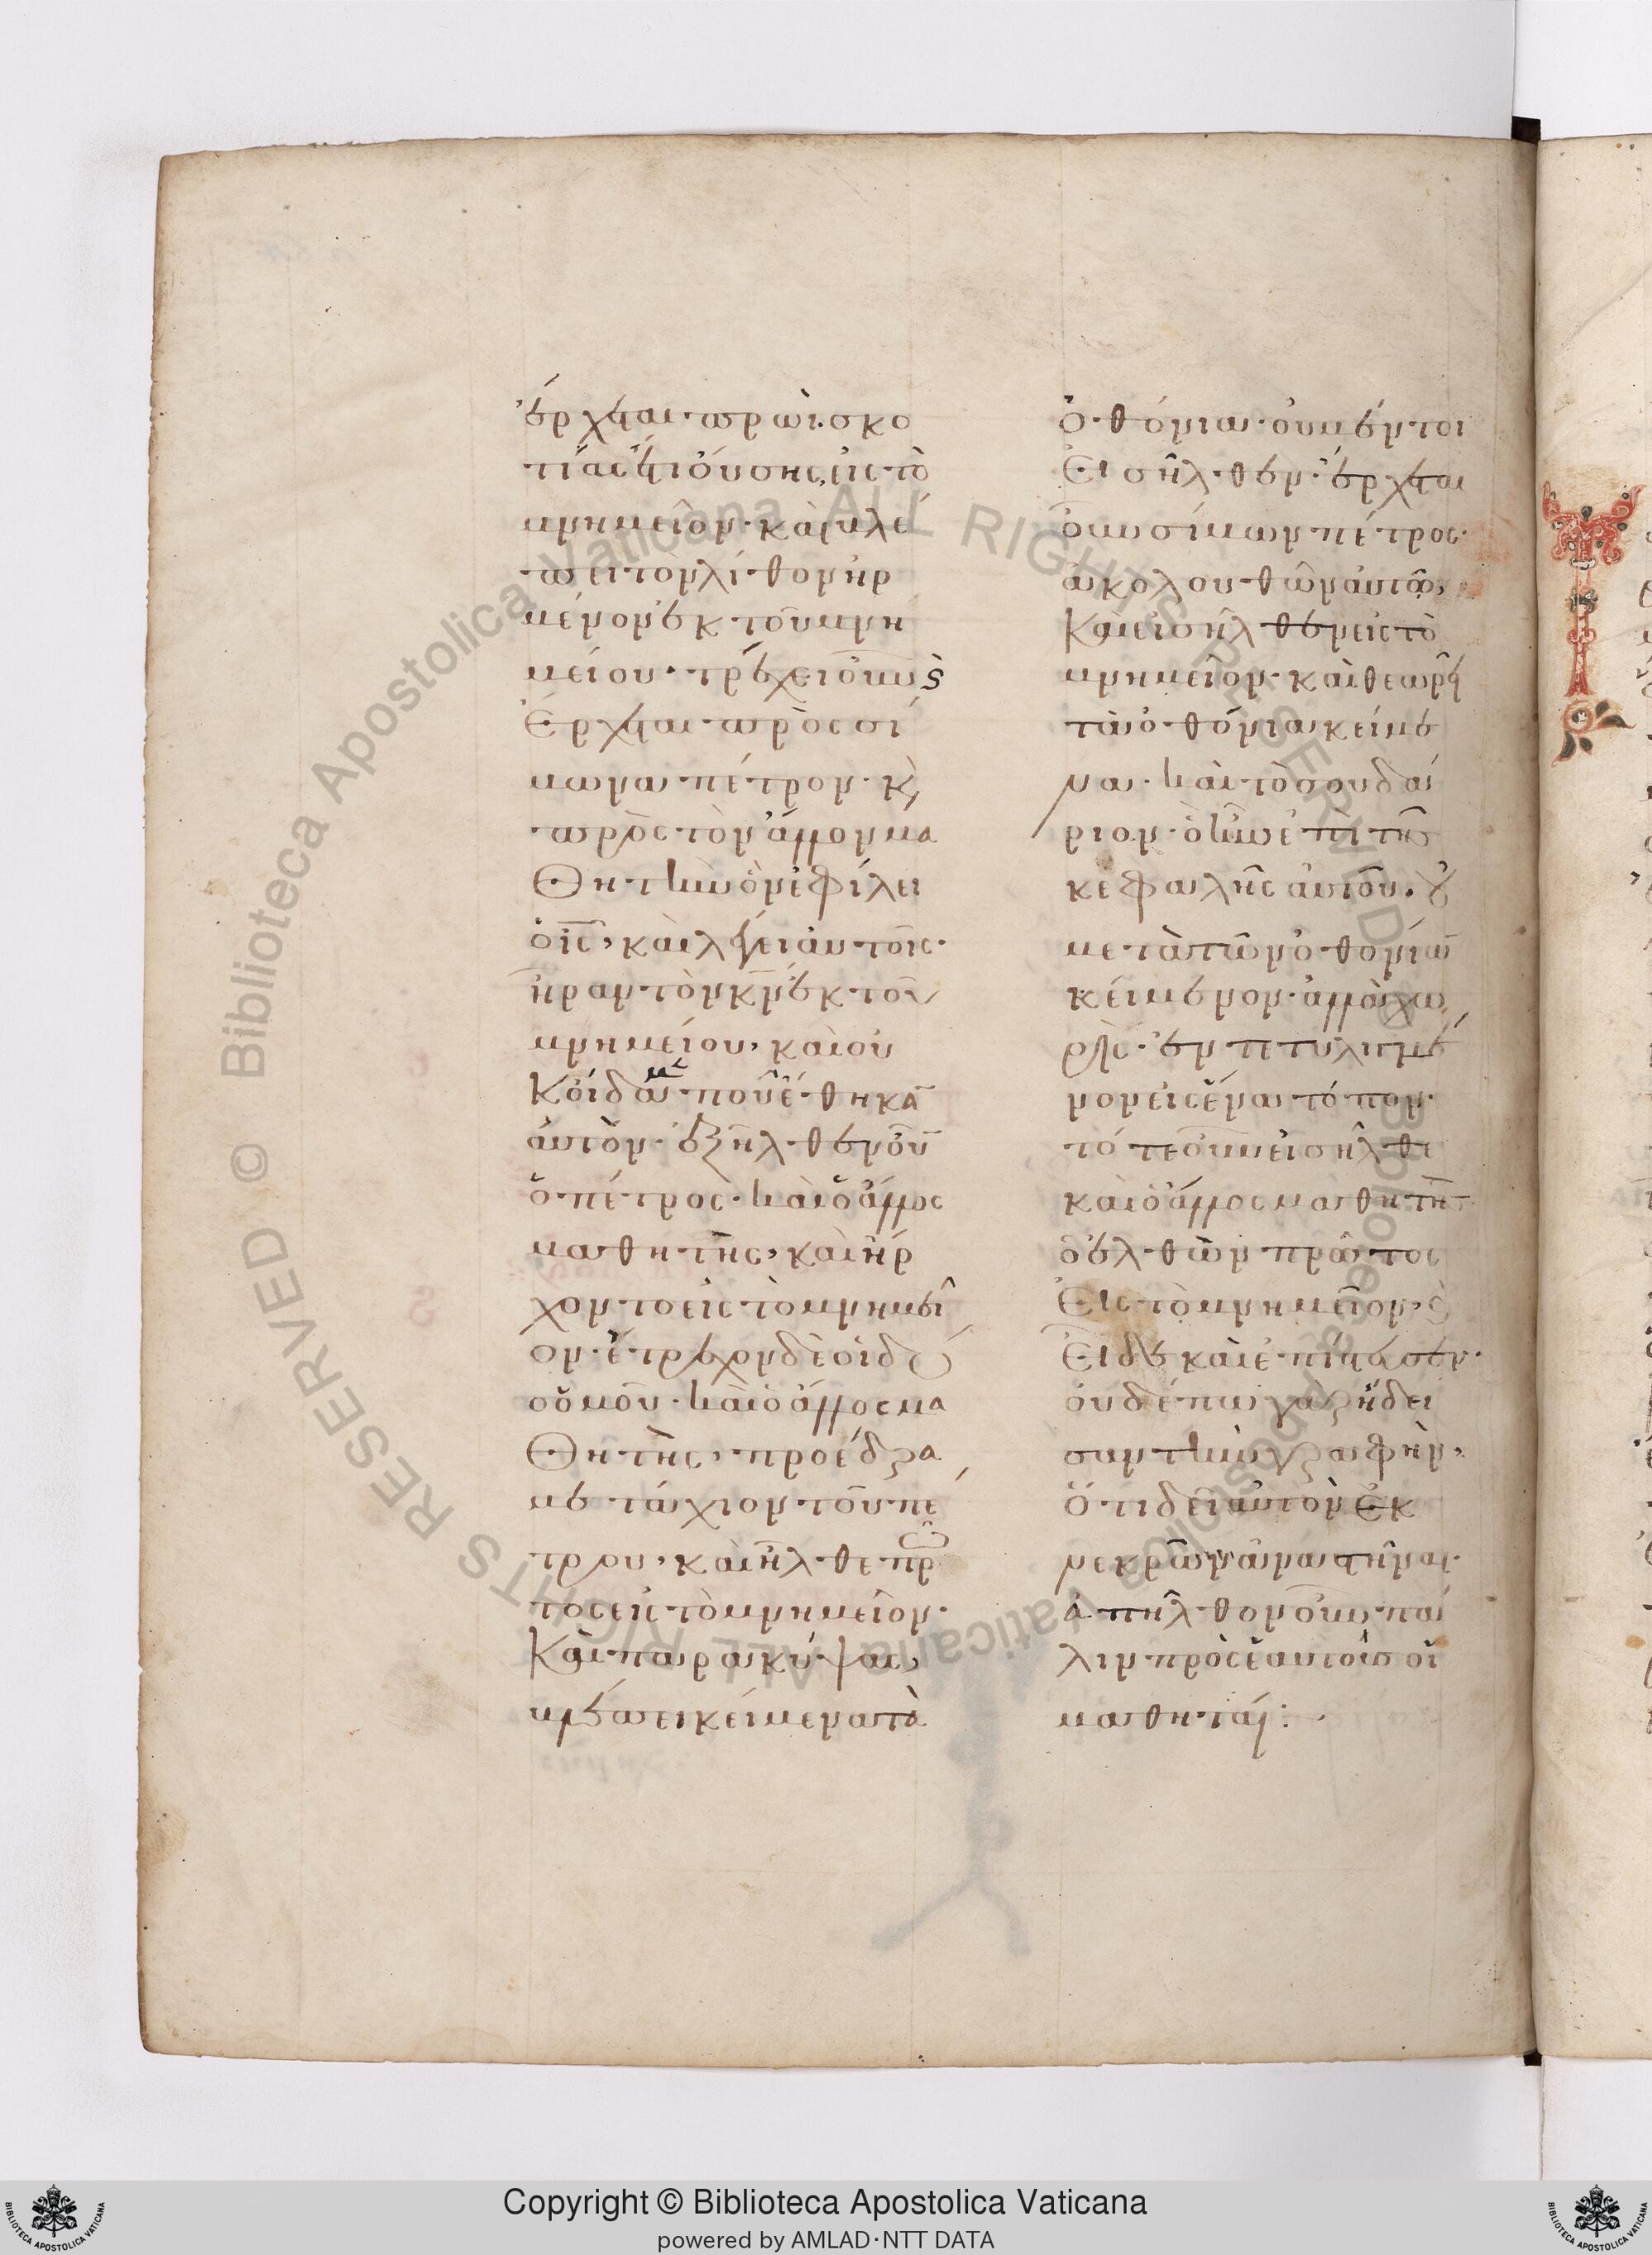 ἔρχεται πρωῒ σκο
τίας ἔτι οὔσης, εἰς τὸ
μνημεῖον· καὶ βλέ
πει τὸν λίθον ἠρ
μένον ἐκ τοῦ μνη
μείου· τρέχει οὖν ϗ
ἔρχεται πρὸς σί
μωνα πέτρον· ϗ
πρὸς τὸν ἄλλον μα
θητὴν ὃν ἐφίλει
ὁ ις, καὶ λέγει αὐτοῖς·
ἦραν τὸν κν ἐκ τοῦ
μνημείου, καὶ οὐ
κ οἶδαμεν ποῦ ἔθηκαν
αὐτόν· ἐξῆλθεν οὖν
ὁ πέτρος· καὶ ὁ ἄλλος
μαθητής, καὶ ἤρ
χοντο εἰς τὸ μνημεῖ
ον· ἔτρεχον δὲ οἱ δύ
ο ὁμοῦ· καὶ ὁ ἄλλος μα
θητής, προέδρα
με τάχιον τοῦ πέ
τρου, καὶ ἦλθε πρῶ
τος εἰς τὸ μνημεῖον·
καὶ παρακύψας,
βλέπει κείμενα τὰ
ὀθόνια· οὐ μέντοι
εἰσῆλθεν· ἔρχεται
οὖν σίμων πέτρος·
ἀκολουθῶν αὐτῷ,
καὶ εἰσῆλθεν εἰς τὸ
μνημεῖον· καὶ θεωρεῖ
τὰ ὀθόνια κείμε
να· καὶ τὸ σουδά
ριον· ὃ ἦν ἐπὶ τῆς
κεφαλῆς αὐτοῦ· οὐ
μετὰ τῶν ὀθονίων
κείμενον· ἀλλὰ χω
ρὶς· ἐντετυλιγμέ
νον εἰς ἕνα τόπον·
τότε οὖν εἰσῆλθε
καὶ ὁ ἄλλος μαθητὴς
ὁ ἐλθὼν πρῶτος
εἰς τὸ μνημεῖον, ϗ
εἶδε καὶ ἐπίστευσεν·
οὐδέπω γὰρ ᾔδει
σαν τὴν γραφήν,
ὅτι δεῖ αὐτὸν ἐκ
νεκρῶν ἀναστῆναι·
ἀπῆλθον οὖν πά
λιν πρὸς ἑαυτοὺς οἱ
μαθηταί:
Copyright © Biblioteca Apostolica Vaticana
powered by AMLAD·NTT DATA